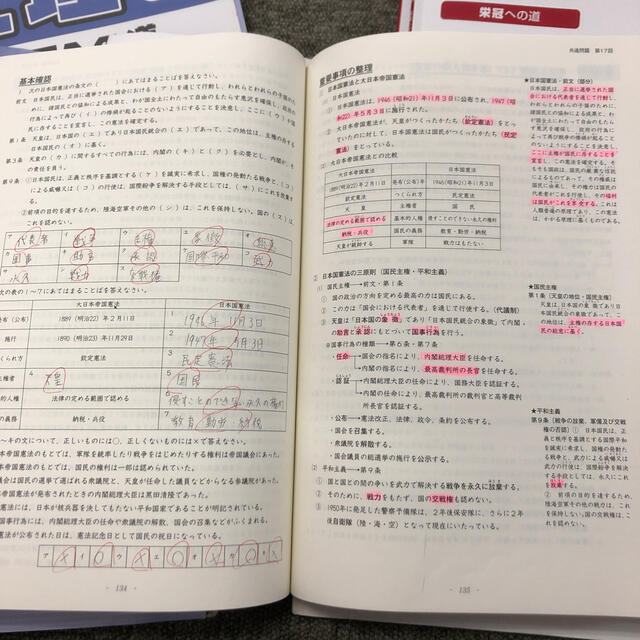 栄冠への道
基本確認
次の日本国憲法の条文の（　）にあてはまることばを答えなさい。
前文 日本国民は、正当に選挙された国会における（ア）を通じて行動し、われらとわれらの子孫の
ために、諸国民との協和による成果と、わが国全土にわたって自由のもたらす恵沢を確保し、政府の
行為によって再び（イ）の惨禍が起こることのないようにすることを決意し、ここに（ウ）が国
民に存することを宣言し、この憲法を確定する。
第1条 天皇は、日本国の（エ）であり日本国民統合の（エ）であって、この地位は、主権の存する
日本国民の（オ）に基く。
第3条 天皇の（カ）に関するすべての行為には、内閣の（キ）と（ク）を必要とし、内閣が、そ
の責任を負う。
第9条 ①日本国民は、正義と秩序を基調とする（ケ）を誠実に希求し、国権の発動たる戦争と、（コ）
による威嚇又は（コ）の行使は、国際紛争を解決する手段としては、（サ）にこれを放棄す
る。
②前項の目的を達するため、陸海空軍その他の（シ）は、これを保持しない。国の（ス）は、
これを認めない。
ア 代表者 イ 戦争 ウ 主権 エ 象徴 オ 総意
カ 国事 キ 助言 ク 承認 ケ 国際平和 コ 武力
サ 永久 シ 戦力 ス 交戦権
次の表の1〜7にあてはまることばを答えなさい。
大日本帝国憲法 日本国憲法
発布（公布） 1889（明治22）年2月11日 1 1946年11月3日
施行 1890（明治23）年11月29日 2 1947年5月3日
つくられ方 欽定憲法 3 民定憲法
主権者 4 天皇 5 国民
法律の定める範囲で認める 6 侵すことのできない永久の権利
の義務 納税・兵役 7 教育 勤労 納税
〜キの文について、正しいものには○、正しくないものには×で答えなさい。
本帝国憲法のもとでは、軍隊を統率したり戦争をはじめたりする権利は帝国議会にあった。
本帝国憲法のもとでは、国民の権利は一部は認められていた。
議会は国民の選挙で選ばれる衆議院と、天皇が任じた議員などからなる参議院があった。
本帝国憲法が発布されたときの内閣総理大臣は黒田清隆であった。
憲法には、日本が核兵器を決してもたない平和国家であることが明記されている。
国事行為には、内閣総理大臣の任命や衆議院の解散、国会の召集などがふくまれる。
憲法が公布された日は、憲法記念日として国民の祝日になっている。
- 134 -
共通問題 第17回
重要事項の整理
1 日本国憲法と大日本帝国憲法
(1) 日本国憲法
① 日本国憲法は、1946（昭和21）年11月3日に公布され、1947（昭
和22）年5月3日に施行された。
② 大日本帝国憲法が、天皇がつくったかたち（欽定憲法）をとっ
ていたのに対して、日本国憲法は国民がつくったかたち（民定
憲法）をとっている。
(2) 大日本帝国憲法との比較
大日本帝国憲法 日本国憲法
1889(明治22)年2月11日 発布(公布)年 1946(昭和21)年11月3日
欽定憲法 つくられ方 民定憲法
天皇 主権者 国民
法律の定める範囲で認める 基本的人権 侵すことのできない永久の権利
納税・兵役 国民の義務 教育・勤労・納税
天皇が統帥する 軍隊 戦力はもたない
2 日本国憲法の三原則（国民主権・平和主義）
(1) 国民主権→前文・第1条
① 国の政治の方向を定める最高の力は国民にある。
② この力は「国会における代表者」を通じて行使する。（代議制）
③ 天皇は「日本国の象徴」であり「日本国民統合の象徴」で内閣
の助言と承認にもとづいて国事行為を行う。
※国事行為の種類→第6条・第7条
・任命→国会の指名により、内閣総理大臣を任命する。
→内閣の指名により、最高裁判所の長官を任命する。
・認証→内閣総理大臣の任命により、国務大臣を認証する。
→内閣の任命により、最高裁判所の裁判官と高等裁判
所長官を認証する。
・公布→憲法改正、法律、政令、条約を公布する。
・国会を召集する。
・衆議院を解散する。
・国会議員の総選挙の施行を公示する。
(2) 平和主義→第9条
① 国と国との間の争いを武力で解決する戦争を永久に放棄する。
② そのために、戦力をもたず、国の交戦権も認めない。
③ 1950年に発足した警察予備隊は、2年後保安隊に、さらに2年
後自衛隊（陸・海・空）となって現在にいたっている。
★日本国憲法・前文（部分）
日本国民は、正当に選挙された国
会における代表者を通じて行動し、
★国民主権
第1条〔天皇の地位・国民主権〕
天皇は、日本国の象徴であり日
本国民統合の象徴であって、この地
位は、主権の存する日本国
民の総意に基く。
★平和主義
第9条〔戦争の放棄、軍備及び交戦
権の否認〕① 日本国民は、正
義と秩序を基調とする国際平和を
誠実に希求し、国権の発動たる戦
争と、武力による威嚇又は武
力の行使は、国際紛争を解決
する手段としては、永久にこ
れを放棄する。
② 前項の目的を達するため、
陸海空軍その他の戦力は、これを
保持しない。国の交戦権は、こ
れを認めない。
- 135 -